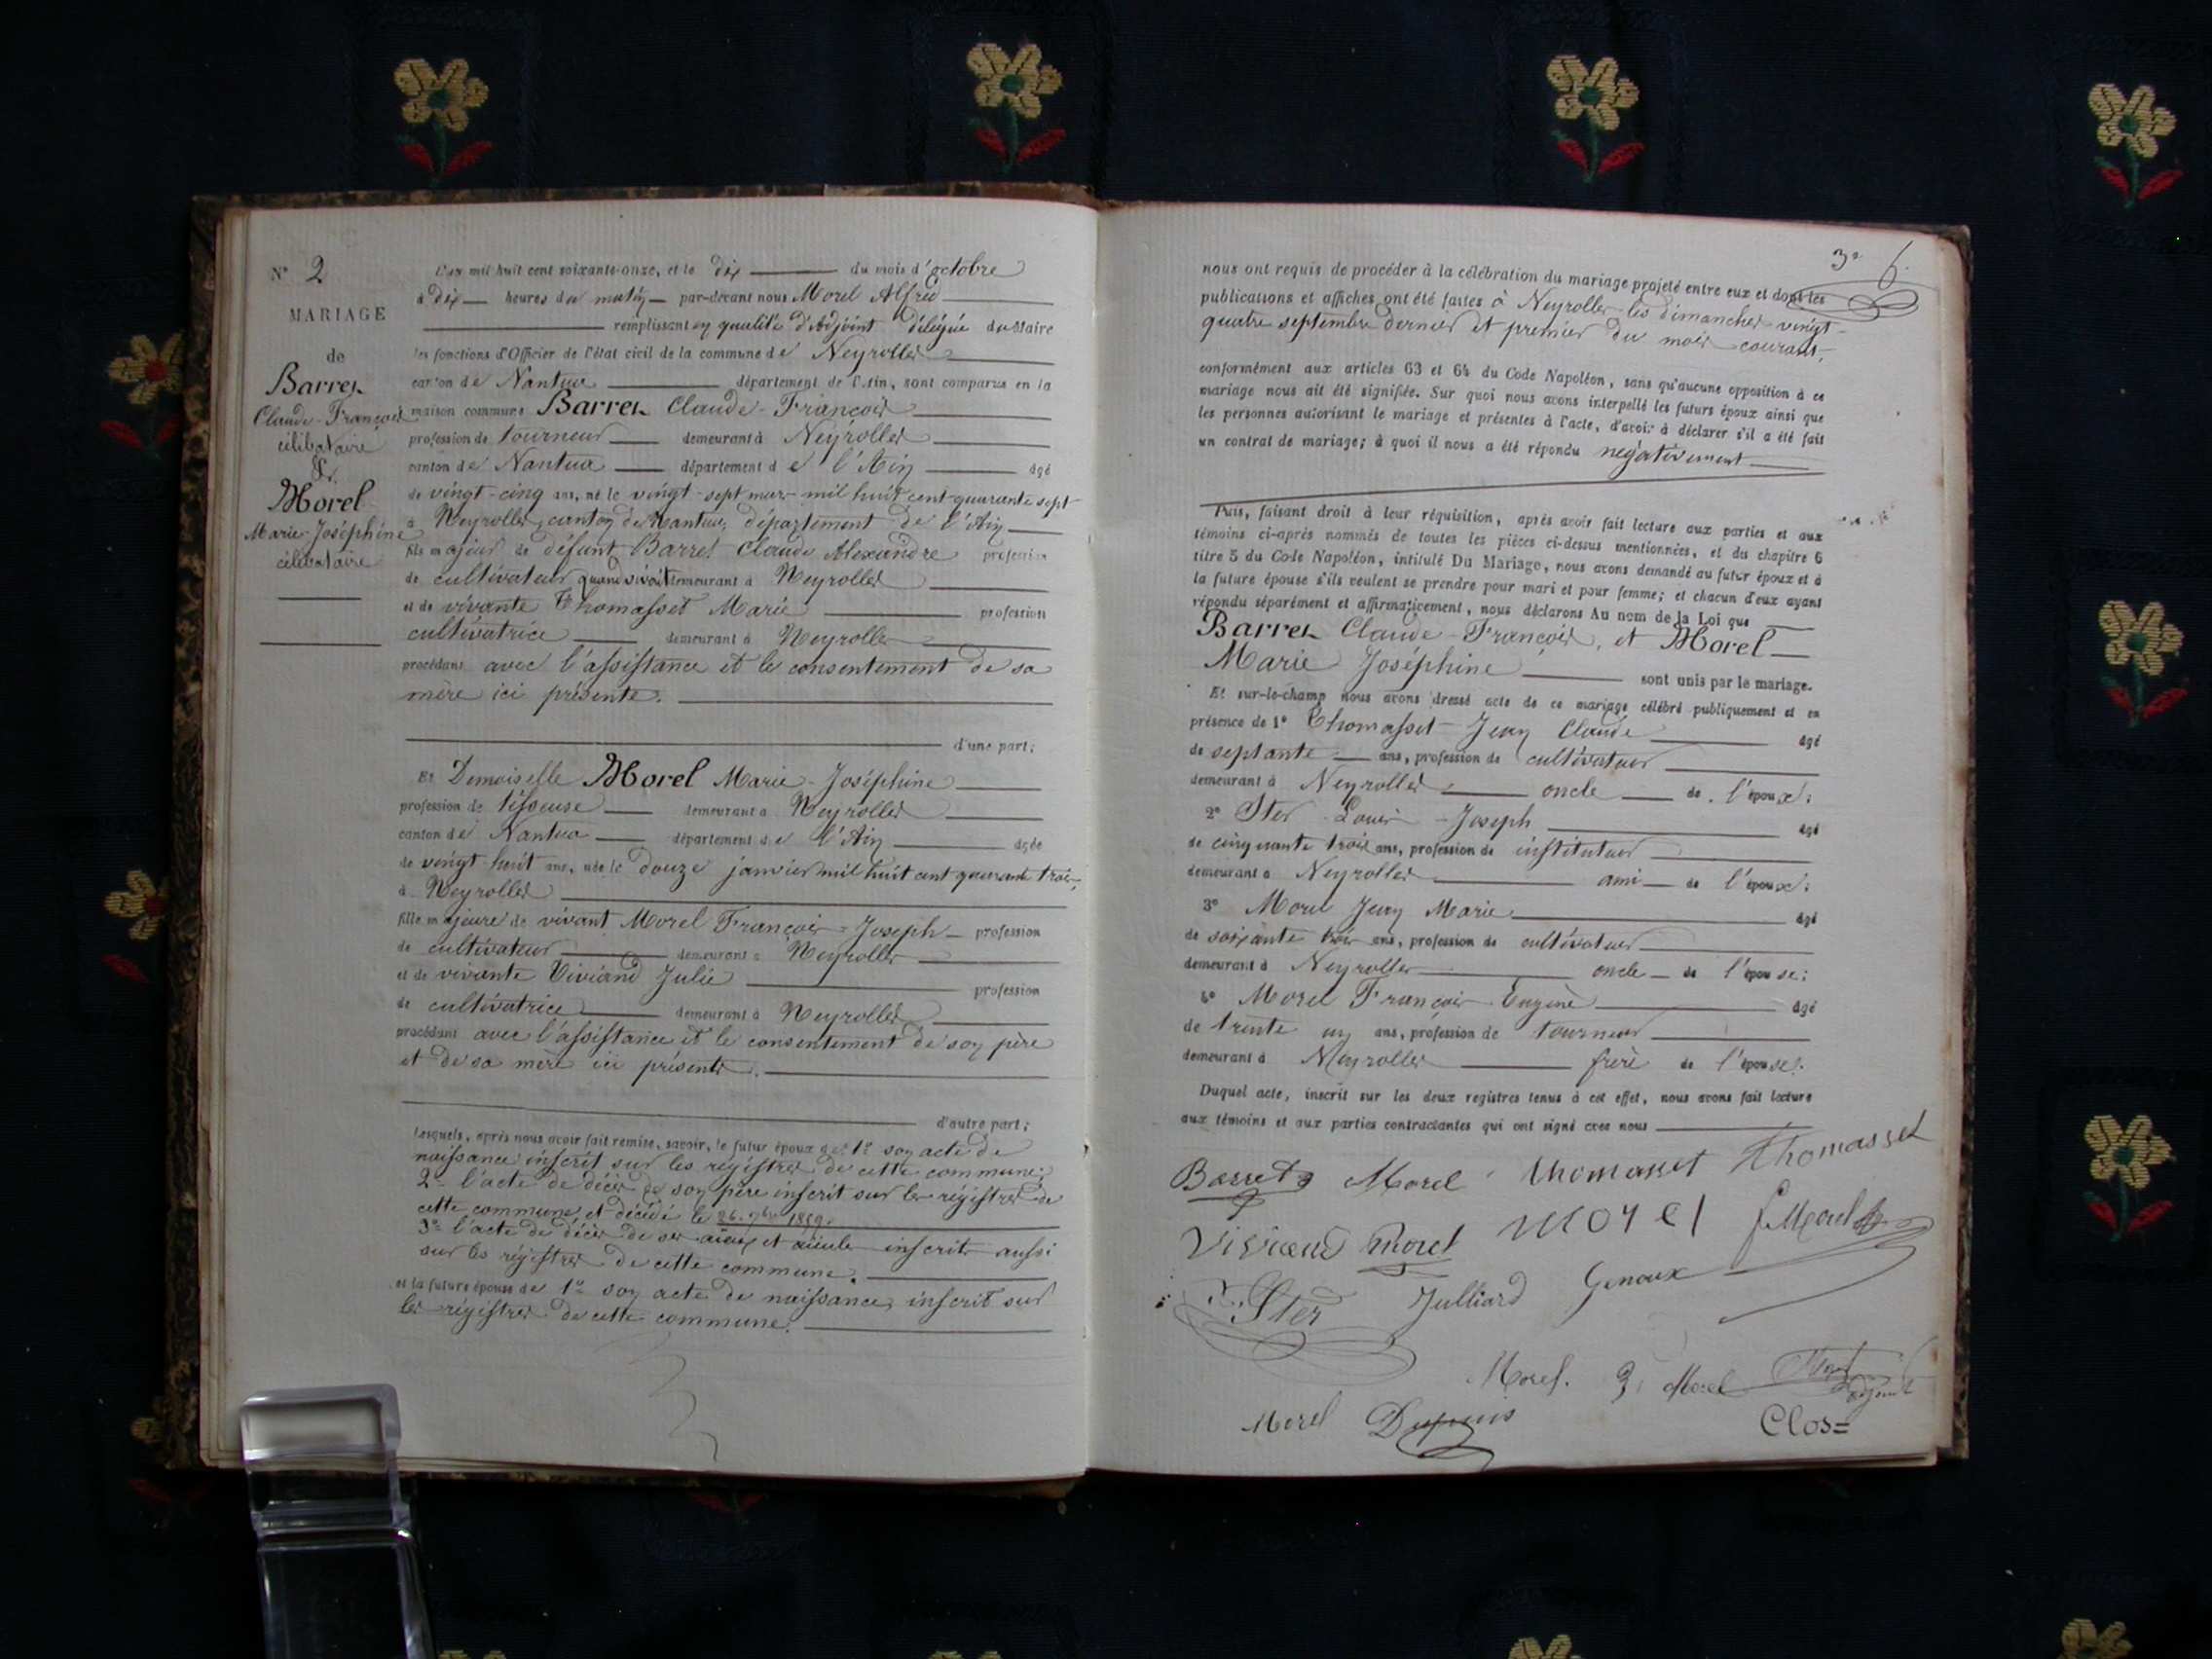 N° 2
MARIAGE
de
Barret
Claude-François
célibataire
&
Morel
Marie-Joséphine
célibataire
L'an mil huit cent soixante-onze, et le dix du mois d'octobre
à dix heures du matin par-devant nous Morel Alfred
remplissant en qualité d'Adjoint délégué du Maire
les fonctions d'Officier de l'état civil de la commune de Neyrolles
canton de Nantua département de l'Ain, sont comparus en la
maison commune Barret Claude-François
profession de tourneur demeurant à Neyrolles
canton de Nantua département de l'Ain âgé
de vingt-cinq ans, né le vingt-sept mars mil huit cent quarante sept
à Neyrolles, canton de Nantua, département de l'Ain
fils majeur de défunt Barret Claude Alexandre profession
de cultivateur quand vivait demeurant à Neyrolles
et de vivante Thomasset Marie profession
cultivatrice demeurant à Neyrolles
procédant avec l'assistance et le consentement de sa
mère ici présente.
d'une part;
Et Demoiselle Morel Marie-Joséphine
profession de tisseuse demeurant à Neyrolles
canton de Nantua département de l'Ain âgée
de vingt-huit ans, née le douze janvier mil huit cent quarante trois,
à Neyrolles
fille majeure de vivant Morel François-Joseph profession
de cultivateur demeurant à Neyrolles
et de vivante Viviand Julie profession
de cultivatrice demeurant à Neyrolles
procédant avec l'assistance et le consentement de son père
et de sa mère ici présents.
d'autre part;
Lesquels, après nous avoir fait remise, savoir, le futur époux de: 1° son acte de
naissance inscrit sur les régistres de cette commune;
2° l'acte de décès de son père inscrit sur les régistres de
cette commune, et décédé le 26 9bre 1859.
3° l'acte de décès de ses aïeux et aïeules inscrits aussi
sur les régistres de cette commune.
et la future épouse de 1° son acte de naissance, inscrit sur
les régistres de cette commune.
3° 6.
nous ont requis de procéder à la célébration du mariage projeté entre eux et dont les
publications et affiches ont été faites à Neyrolles les dimanches vingt-
quatre septembre dernier et premier du mois courant,
conformément aux articles 63 et 64 du Code Napoléon, sans qu'aucune opposition à ce
mariage nous ait été signifiée. Sur quoi nous avons interpellé les futurs époux ainsi que
les personnes autorisant le mariage et présentes à l'acte, d'avoir à déclarer s'il a été fait
un contrat de mariage; à quoi il nous a été répondu négativement
Puis, faisant droit à leur réquisition, après avoir fait lecture aux parties et aux
témoins ci-après nommés de toutes les pièces ci-dessus mentionnées, et du chapitre 6
titre 5 du Code Napoléon, intitulé Du Mariage, nous avons demandé au futur époux et à
la future épouse s'ils veulent se prendre pour mari et pour femme; et chacun d'eux ayant
répondu séparément et affirmativement, nous déclarons Au nom de la Loi que
Barret Claude-François, et Morel
Marie Joséphine sont unis par le mariage.
Et sur-le-champ nous avons dressé acte de ce mariage célébré publiquement et en
présence de 1° Thomasset Jean Claude âgé
de septante ans, profession de cultivateur
demeurant à Neyrolles oncle de l'époux;
2° Ster Louis-Joseph âgé
de cinquante trois ans, profession de instituteur
demeurant à Neyrolles ami de l'époux;
3° Morel Jean Marie âgé
de soixante trois ans, profession de cultivateur
demeurant à Neyrolles oncle de l'épouse;
4° Morel François-Eugène âgé
de trente un ans, profession de tourneur
demeurant à Neyrolles frère de l'épouse.
Duquel acte, inscrit sur les deux registres tenus à cet effet, nous avons fait lecture
aux témoins et aux parties contractantes qui ont signé avec nous
Barret Morel thomasset Thomasset
Viviand Morel Morel f. Morel
Ster Julliard Genoux
Morel. Morel adjoint
Morel Dupuis Clos=